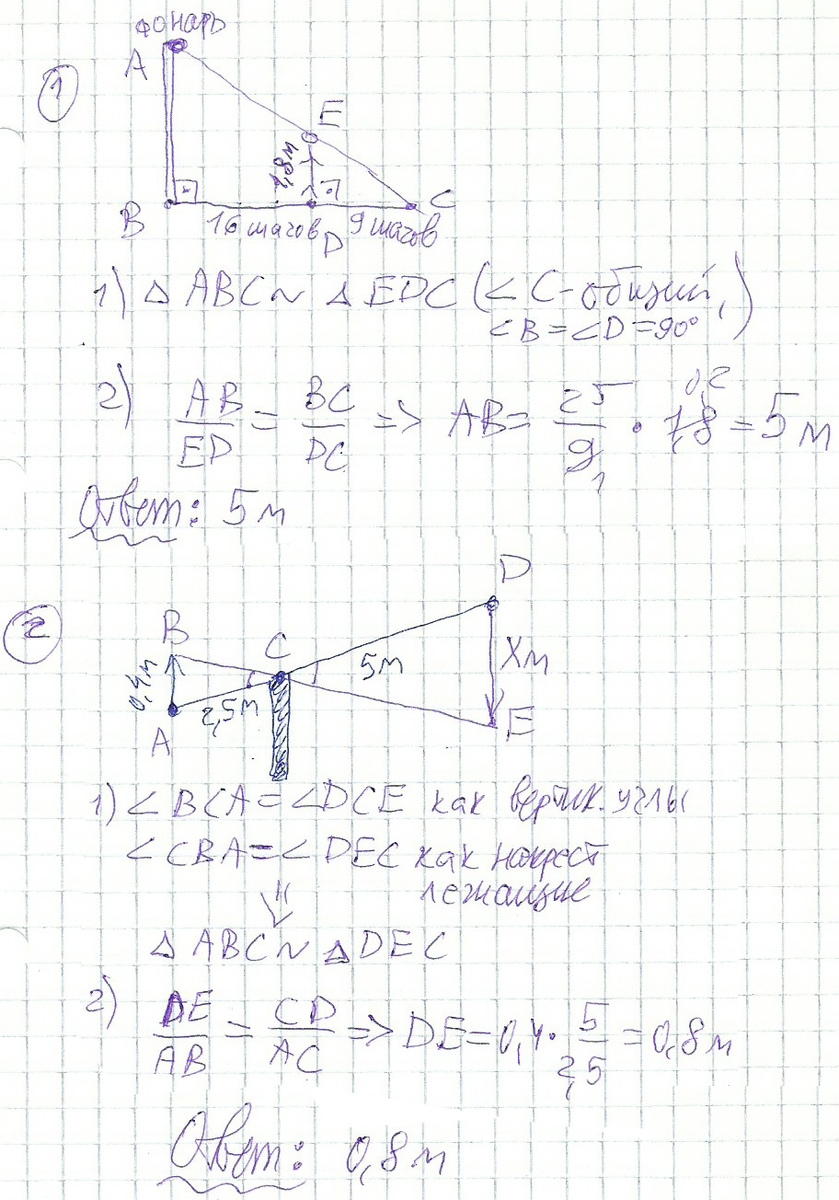 фонарь
A
1
E
1,8м
B
C
16 шагов
D
9 шагов
1) Δ ABC ~ Δ EDC (∠ C - общий,
∠B = ∠D = 90°)
2) AB/ED = BC/DC => AB = 25/9 1 · 1,8 0,2 = 5 м
Ответ: 5 м
2
D
B
C
0,4м
5м
Xм
2,5м
A
E
1) ∠ BCA = ∠DCE как вертик. углы
∠ CBA = ∠ DEC как накрест
лежащие
⇓
Δ ABC ~ Δ DEC
2) DE/AB = CD/AC => DE = 0,4 · 5/2,5 = 0,8 м
Ответ: 0,8 м